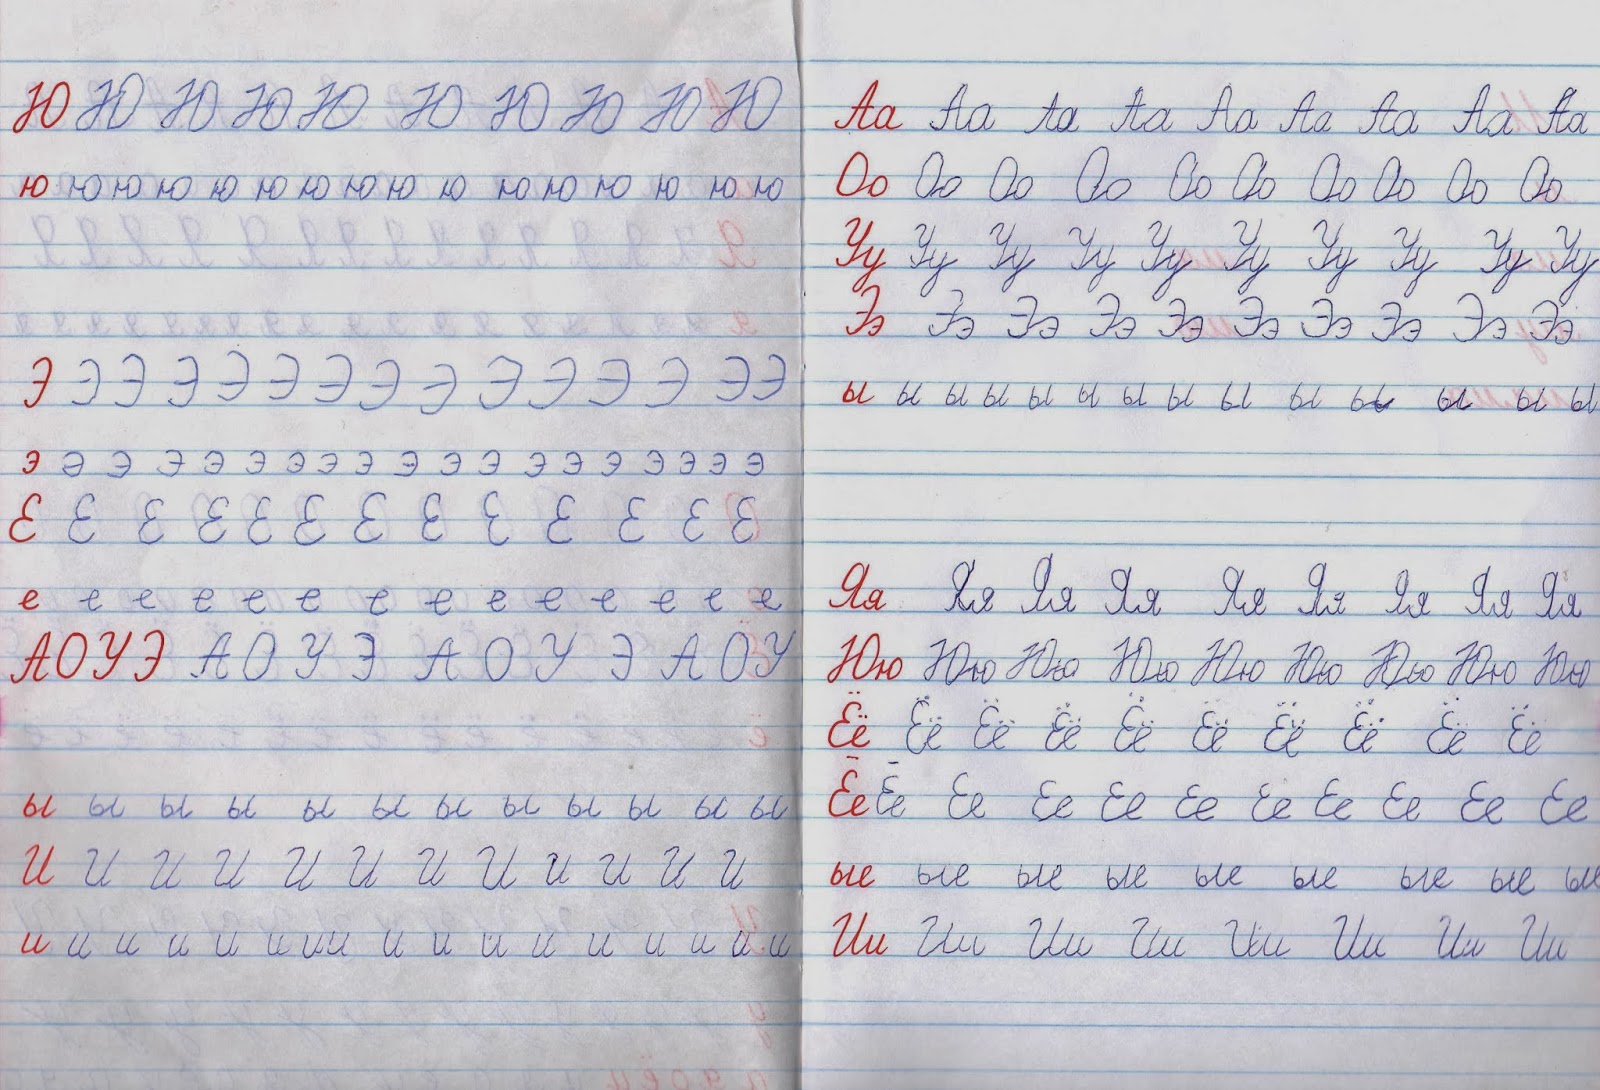 Ю Ю Ю Ю Ю Ю Ю Ю Ю Ю
ю ю ю ю ю ю ю ю ю ю ю ю ю ю ю ю
Э Э Э Э Э Э Э Э Э Э Э Э Э Э Э
э э э э э э э э э э э э э э э э э э э
Е Е Е Е Е Е Е Е Е Е Е Е Е
е е е е е е е е е е е е е е
АОУЭ А О У Э А О У Э А О У
ы ы ы ы ы ы ы ы ы ы ы ы
И И И И И И И И И И И И
и и и и и и и и и и и и и и и и и
Аа Аа Аа Аа Аа Аа Аа Аа Аа
Оо Оо Оо Оо Оо Оо Оо Оо Оо Оо
Уу Уу Уу Уу Уу Уу Уу Уу Уу Уу
Ээ Ээ Ээ Ээ Ээ Ээ Ээ Ээ Ээ Ээ
ы ы ы ы ы ы ы ы ы ы ы ы ы ы
Яя Яя Яя Яя Яя Яя Яя Яя Яя
Юю Юю Юю Юю Юю Юю Юю Юю Юю
Ёё Ёё Ёё Ёё Ёё Ёё Ёё Ёё Ёё Ёё
Ее Ее Ее Ее Ее Ее Ее Ее Ее Ее Ее
ые ые ые ые ые ые ые ые ые
Ии Ии Ии Ии Ии Ии Ии Ии